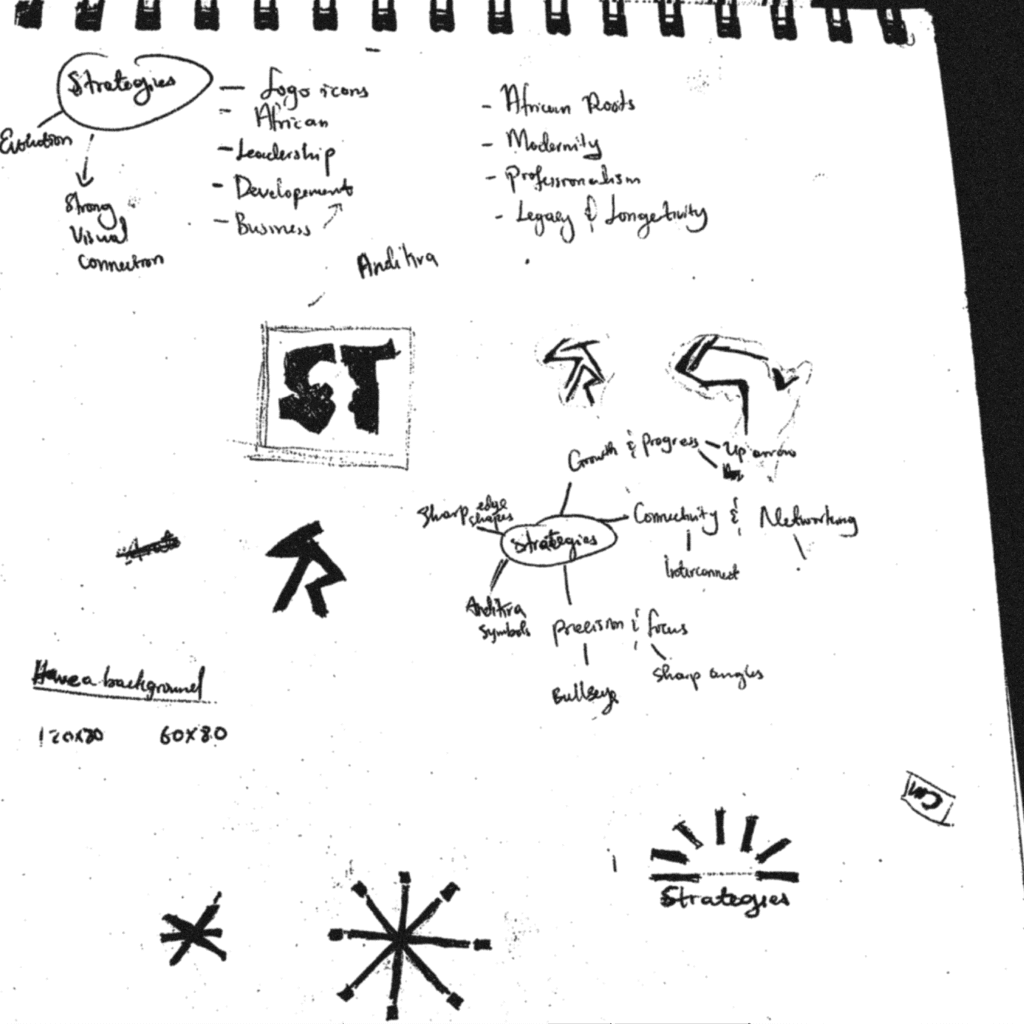 Strategies
Evolution
Strong
Visual
Connection
- Logo icons
- African
- Leadership
- Developement
- Business
- African Roots
- Modernity
- Professionalism
- Legacy & Longetivity
Anditira
ST
Growth & Progress
Up arrow
Sharp edge
shapes
Strategies
Connectivity & Networking
Interconnect
Anditira
Symbols
Precision & focus
Bullseye
Sharp angles
Have a background
120x80
60x80
Strategies